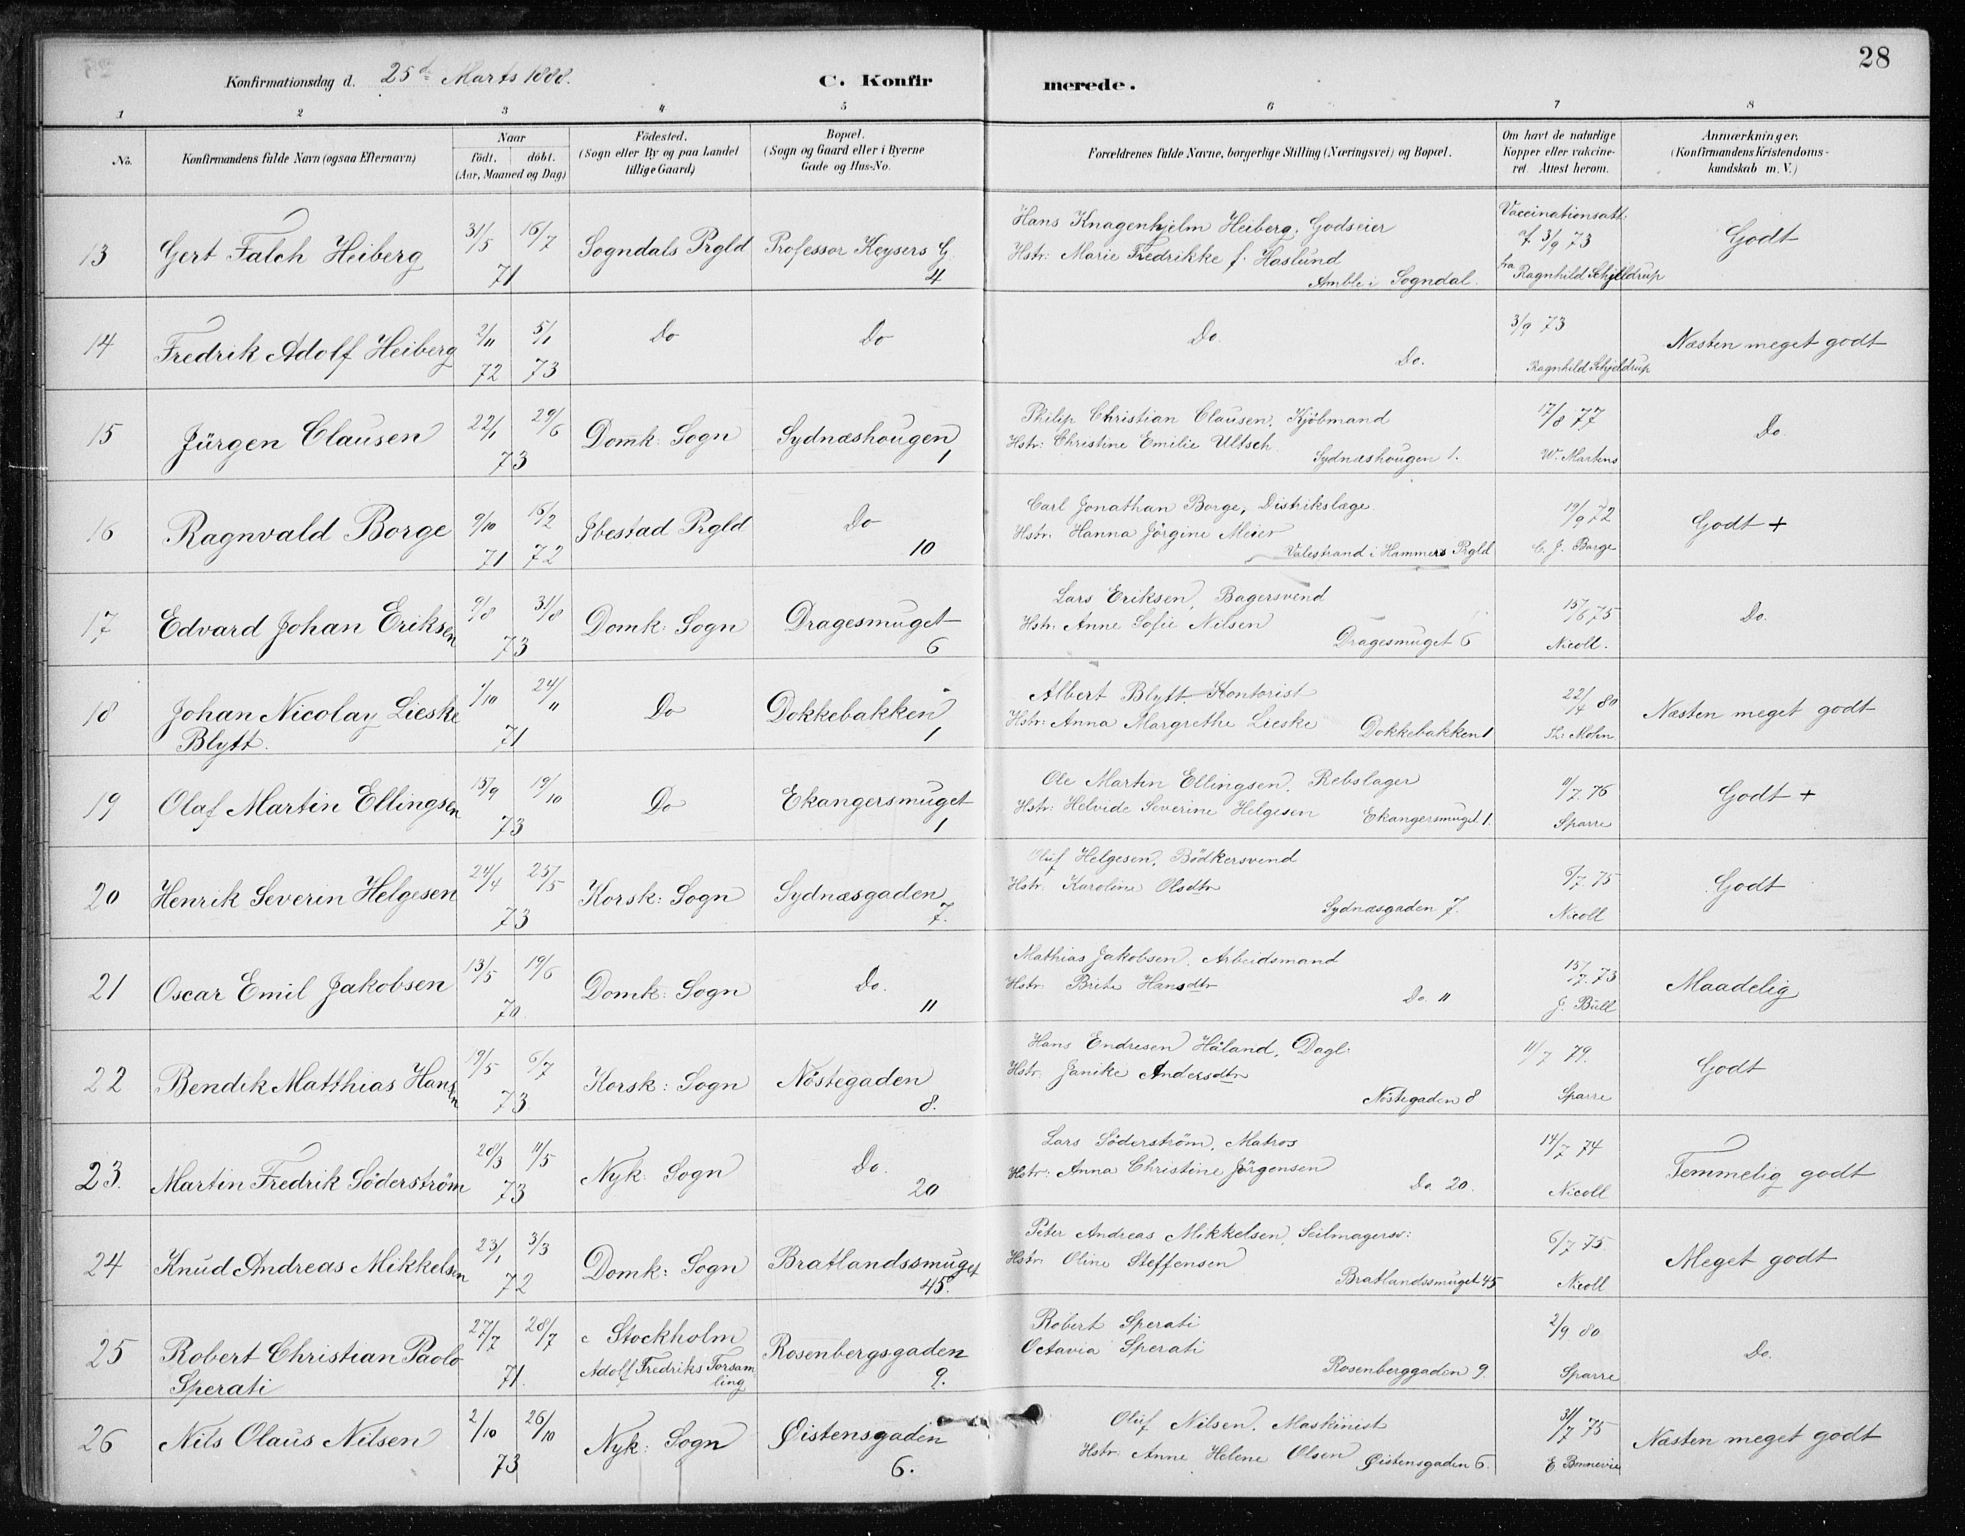 28
Konfirmationsdag d. 25de Marts 1888.
C. Konfirmerede.
1 2 3 4 5 6 7 8
No.
Konfirmandens fulde Navn (ogsaa Efternavn)
Naar
født. døbt.
(Aar, Maaned og Dag)
Fødested.
(Sogn eller By og paa Landet
tillige Gaard)
Bopæl.
(Sogn og Gaard eller i Byerne
Gade og Hus-No.
Forældrenes fulde Navne, borgerlige Stilling (Næringsvei) og Bopæl.
Om havt de naturlige
Kopper eller vakcine-
ret. Attest herom.
Anmærkninger.
(Konfirmandens Kristendoms-
kundskab m. V.)
13 Gert Falch Heiberg 31/5 16/7 71 Sogndals Prgld Professor Keysers G. 4
Hans Knagenhjelm Heiberg, Godseier
Hstr: Marie Fredrikke f. Haslund
Amble i Sogndal.
Vaccinationsatt:
af 3/9 73
fra Ragnhild Schjelldrup
Godt
14 Fredrik Adolf Heiberg 2/11 72 5/1 73 Do Do
Do.
Do.
3/9 73
Ragnhild Schjeldrup
Næsten meget godt
15 Jürgen Clausen 22/1 29/6 73 Domk: Sogn Sydnæshougen 1
Philip Christian Clausen, Kjøbmand
Hstr: Christine Emilie Ultsch
Sydnæshougen 1.
17/8 77
W. Martens
Do.
16 Ragnvald Borge 9/10 71 16/2 72 Ibestad Prgld Do 10
Carl Jonathan Borge, Distrikslæge
Hstr. Hanna Jørgine Meier
Valestrand i Hammers Prgld
19/9 72
C. J. Borge
Godt +
17 Edvard Johan Eriksen 9/8 31/8 73 Domk: Sogn Dragesmuget 6
Lars Eriksen, Bagersvend
Hstr: Anne Sofie Nilsen
Dragesmuget 6
15/6 75
Nicoll.
Do.
18 Johan Nicolay Lieske
Blytt. 1/10 24/11 71 Do Dokkebakken 1
Albert Blytt Kontorist
Hstr: Anna Margrethe Lieske
Dokkebakken 1
22/4 80
Th: Mohn
Næsten meget godt
19 Olaf Martin Ellingsen 15/9 19/10 73 Do Ekangersmuget 1
Ole Martin Ellingsen, Rebslager
Hstr: Helvide Severine Helgesen
Ekangersmuget 1.
11/7 76
Sparre
Godt +
20 Henrik Severin Helgesen 24/4 25/5 73 Korsk: Sogn Sydnæsgaden 7.
Oluf Helgesen, Bödkersvend
Hstr. Karoline Olsdtr
Sydnæsgaden 7.
6/7 75
Nicoll
Godt
21 Oscar Emil Jakobsen 13/5 19/6 70. Domk: Sogn Do. 11
Mathias Jakobsen, Arbeidsmand
Hstr. Brite Hansdtr
Do. 11
15/7 73
J. Büll
Maadelig
22 Bendik Matthias Hansen 19/5 6/7 73 Korsk: Sogn Nöstegaden 8.
Hans Endresen Håland, Dagl:
Hstr. Janike Andersdtr
Nöstegaden 8
11/7 79.
Sparre
Godt
23. Martin Fredrik Söderström 28/3 11/5 73 Nyk: Sogn Do. 20
Lars Söderström, Matros
Hstr: Anna Christine Jörgensen
Do. 20.
14/7 74
Nicoll
Temmelig godt
24 Knud Andreas Mikkelsen 23/1 3/3 72 Domk: Sogn Bratlandssmuget 45.
Peter Andreas Mikkelsen, Seilmagersv:
Hstr. Oline Steffensen
Bratlandssmuget 45
6/7 75
Nicoll
Meget godt
25 Robert Christian Paolo
Sperati 27/7 28/7 71. Stockholm
Adolf Fredriks Forsamling Rosenbergsgaden 9.
Robert Sperati
Octavia Sperati
Rosenberggaden 9.
2/9 80
Sparre
Do.
26 Nils Olaus Nilsen 2/10 26/10 73 Nyk: Sogn Øistensgaden 6.
Oluf Nilsen, Maskinist
Hstr. Anne Helene Olsen
Øistensgaden 6.
31/7 75
E Bonnevie
Næsten meget godt